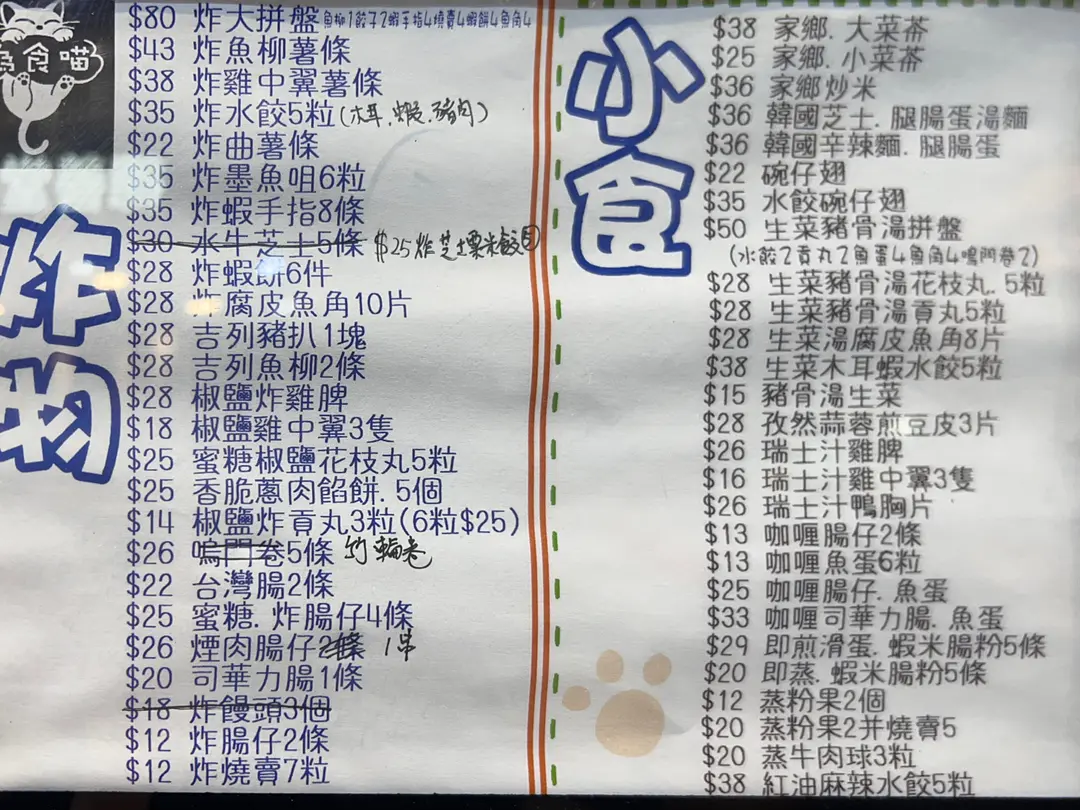 為食喵
炸物
$80 炸大拼盤 魚柳1餃子2蝦手指4燒賣4蝦餅4魚角4
$43 炸魚柳薯條
$38 炸雞中翼薯條
$35 炸水餃5粒(木耳.蝦.豬肉)
$22 炸曲薯條
$35 炸墨魚咀6粒
$35 炸蝦手指8條
$30 水牛芝士5條 $25炸芝士粟米餃
$28 炸蝦餅6件
$28 炸腐皮魚角10片
$28 吉列豬扒1塊
$28 吉列魚柳2條
$28 椒鹽炸雞脾
$18 椒鹽雞中翼3隻
$25 蜜糖椒鹽花枝丸5粒
$25 香脆蔥肉餡餅.5個
$14 椒鹽炸貢丸3粒(6粒$25)
$26 鳴門卷5條 竹輪卷
$22 台灣腸2條
$25 蜜糖.炸腸仔4條
$26 煙肉腸仔2條 1串
$20 司華力腸1條
$18 炸饅頭3個
$12 炸腸仔2條
$12 炸燒賣7粒
小食
$38 家鄉.大菜茶
$25 家鄉.小菜茶
$36 家鄉炒米
$36 韓國芝士.腿腸蛋湯麵
$36 韓國辛辣麵.腿腸蛋
$22 碗仔翅
$35 水餃碗仔翅
$50 生菜豬骨湯拼盤
(水餃2貢丸2魚蛋4魚角4鳴門卷2)
$28 生菜豬骨湯花枝丸.5粒
$28 生菜豬骨湯貢丸5粒
$28 生菜湯腐皮魚角8片
$38 生菜木耳蝦水餃5粒
$15 豬骨湯生菜
$28 孜然蒜蓉煎豆皮3片
$26 瑞士汁雞脾
$16 瑞士汁雞中翼3隻
$26 瑞士汁鴨胸片
$13 咖喱腸仔2條
$13 咖喱魚蛋6粒
$25 咖喱腸仔.魚蛋
$33 咖喱司華力腸.魚蛋
$29 即煎滑蛋.蝦米腸粉5條
$20 即蒸.蝦米腸粉5條
$12 蒸粉果2個
$20 蒸粉果2并燒賣5
$20 蒸牛肉球3粒
$38 紅油麻辣水餃5粒